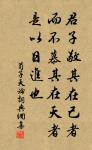 君子敬其在己者
而不慕其在天者
是以日進也
荀子天論胡兵儷集